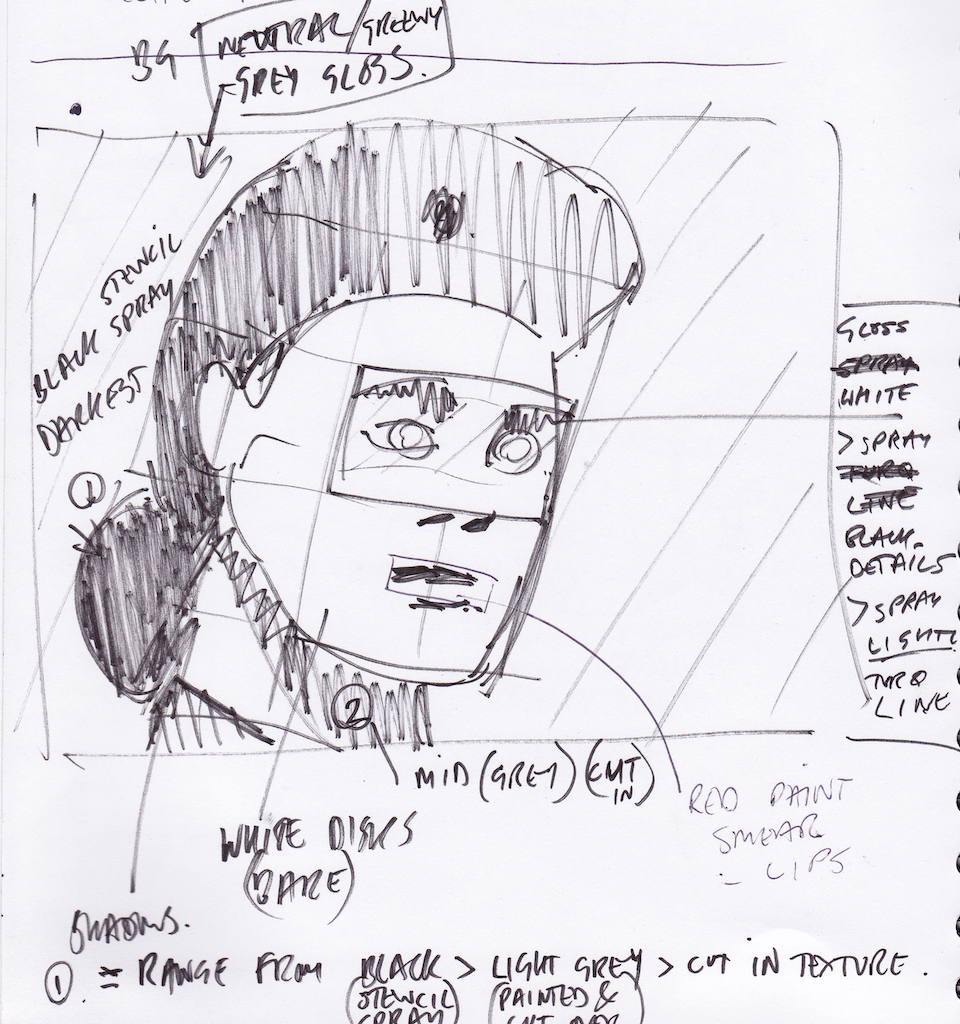 BG
NEUTRAL/GREENY
GREY GLOSS.
STENCIL
BLACK SPRAY
DARKEST
1
GLOSS
SPRAY
WHITE
> SPRAY
TURQ
LINE
BLACK
DETAILS
> SPRAY
LIGHT
TURQ
LINE
2
MID (GREY) (CUT
IN)
RED PAINT
SMEAR
- LIPS
WHITE DISKS
(BARE)
SHADOWS.
1 = RANGE FROM BLACK > LIGHT GREY > CUT IN TEXTURE.
(STENCIL (PAINTED &
SPRAY CUT OVER